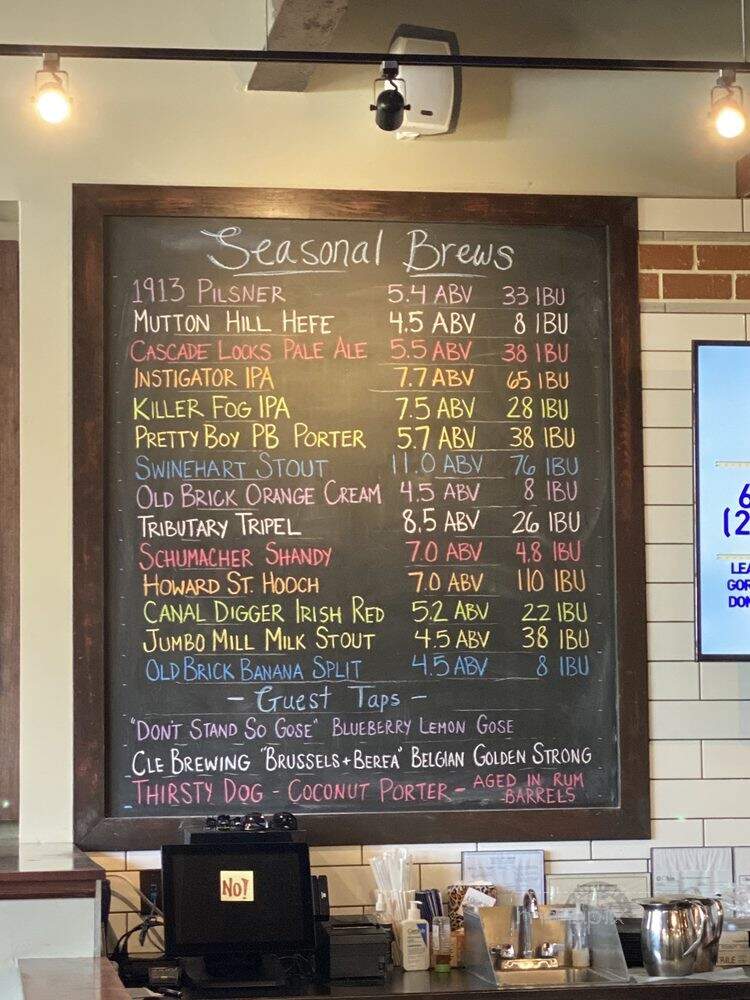 Seasonal Brews
1913 PILSNER 5.4 ABV 33 IBU
MUTTON HILL HEFE 4.5 ABV 8 IBU
CASCADE LOCKS PALE ALE 5.5 ABV 38 IBU
INSTIGATOR IPA 7.7 ABV 65 IBU
KILLER FOG IPA 7.5 ABV 28 IBU
PRETTY BOY PB PORTER 5.7 ABV 38 IBU
SWINEHART STOUT 11.0 ABV 76 IBU
OLD BRICK ORANGE CREAM 4.5 ABV 8 IBU
TRIBUTARY TRIPEL 8.5 ABV 26 IBU
SCHUMACHER SHANDY 7.0 ABV 4.8 IBU
HOWARD ST. HOOCH 7.0 ABV 110 IBU
CANAL DIGGER IRISH RED 5.2 ABV 22 IBU
JUMBO MILL MILK STOUT 4.5 ABV 38 IBU
OLD BRICK BANANA SPLIT 4.5 ABV 8 IBU
- Guest Taps -
"DON'T STAND SO GOSE" BLUEBERRY LEMON GOSE
CLE BREWING "BRUSSELS + BEREA" BELGIAN GOLDEN STRONG
THIRSTY DOG - COCONUT PORTER - AGED IN RUM
BARRELS
6
(2
LEA
GOR
DON
NO!